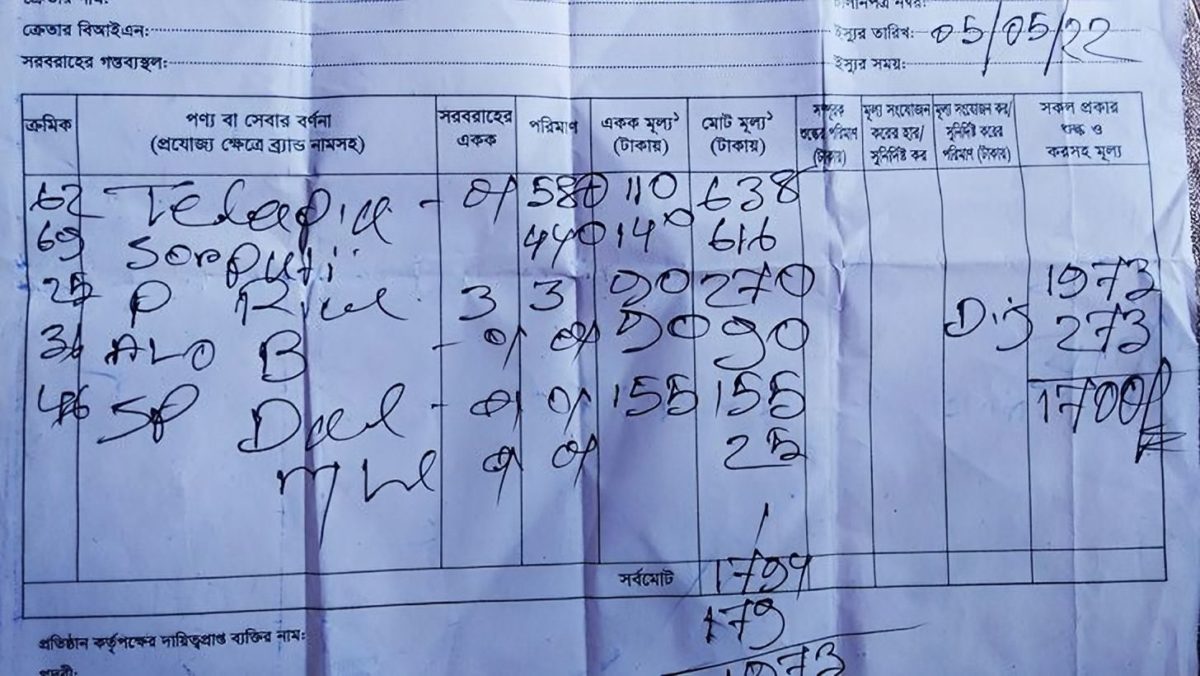 ক্রেতার বিআইএন:
সরবরাহের গন্তব্যস্থল:
ইস্যুর তারিখ: 05/05/22
ইস্যুর সময়:
ক্রমিক পণ্য বা সেবার বর্ণনা (প্রযোজ্য ক্ষেত্রে ব্র্যান্ড নামসহ) সরবরাহের একক পরিমাণ একক মূল্য১ (টাকায়) মোট মূল্য১ (টাকায়) সম্পূরক শুল্কের পরিমাণ (টাকায়) মূল্য সংযোজন করের হার/ সুনির্দিষ্ট কর মূল্য সংযোজন কর/ সুনির্দিষ্ট করের পরিমাণ (টাকায়) সকল প্রকার শুল্ক ও করসহ মূল্য
62 Telapia - 580 110 638
69 Sorputi 440 140 616
P Rice 3 3 90 270 1973
Alo B - 90 90 Dis 273
46 SP Dal - 155 155 1700/=
25
সর্বমোট 1794
179
1973
প্রতিষ্ঠান কর্তৃপক্ষের দায়িত্বপ্রাপ্ত ব্যক্তির নাম:
পদবী: